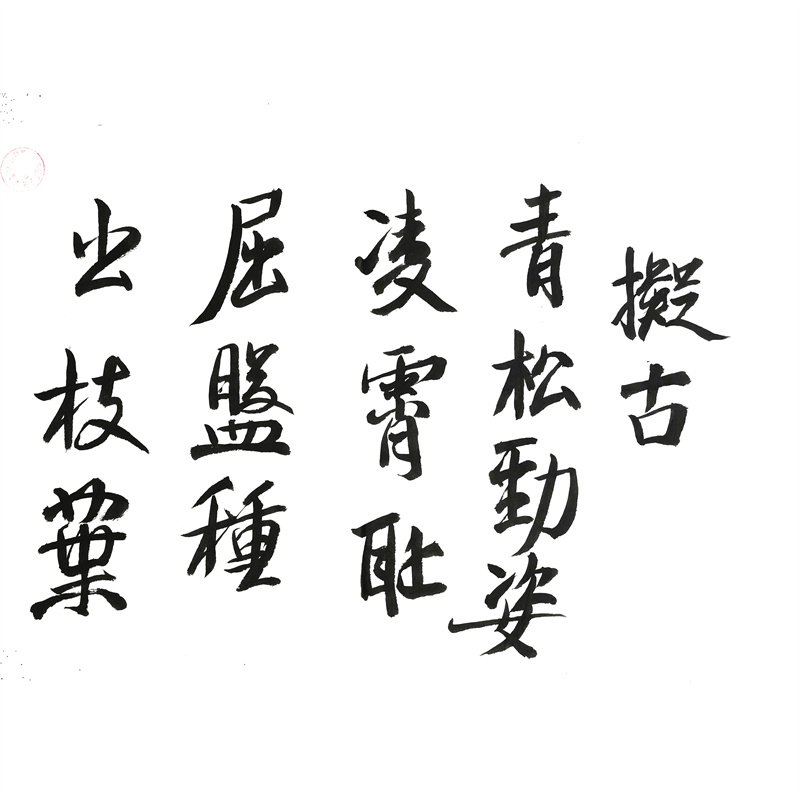 擬古
青松勁姿
凌霄耻
屈盤種
出枝葉